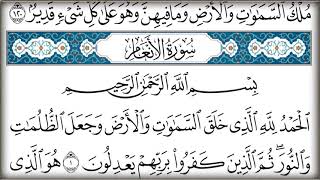 مُلْكُ ٱلسَّمَٰوَٰتِ وَٱلْأَرْضِ وَمَا فِيهِنَّ وَهُوَ عَلَىٰ كُلِّ شَىْءٍ قَدِيرٌۢ ١٢٠
سُورَةُ ٱلْأَنْعَامِ
بِسْمِ ٱللَّهِ ٱلرَّحْمَٰنِ ٱلرَّحِيمِ
ٱلْحَمْدُ لِلَّهِ ٱلَّذِى خَلَقَ ٱلسَّمَٰوَٰتِ وَٱلْأَرْضَ وَجَعَلَ ٱلظُّلُمَٰتِ
وَٱلنُّورَ ۖ ثُمَّ ٱلَّذِينَ كَفَرُوا۟ بِرَبِّهِمْ يَعْدِلُونَ ١ هُوَ ٱلَّذِى